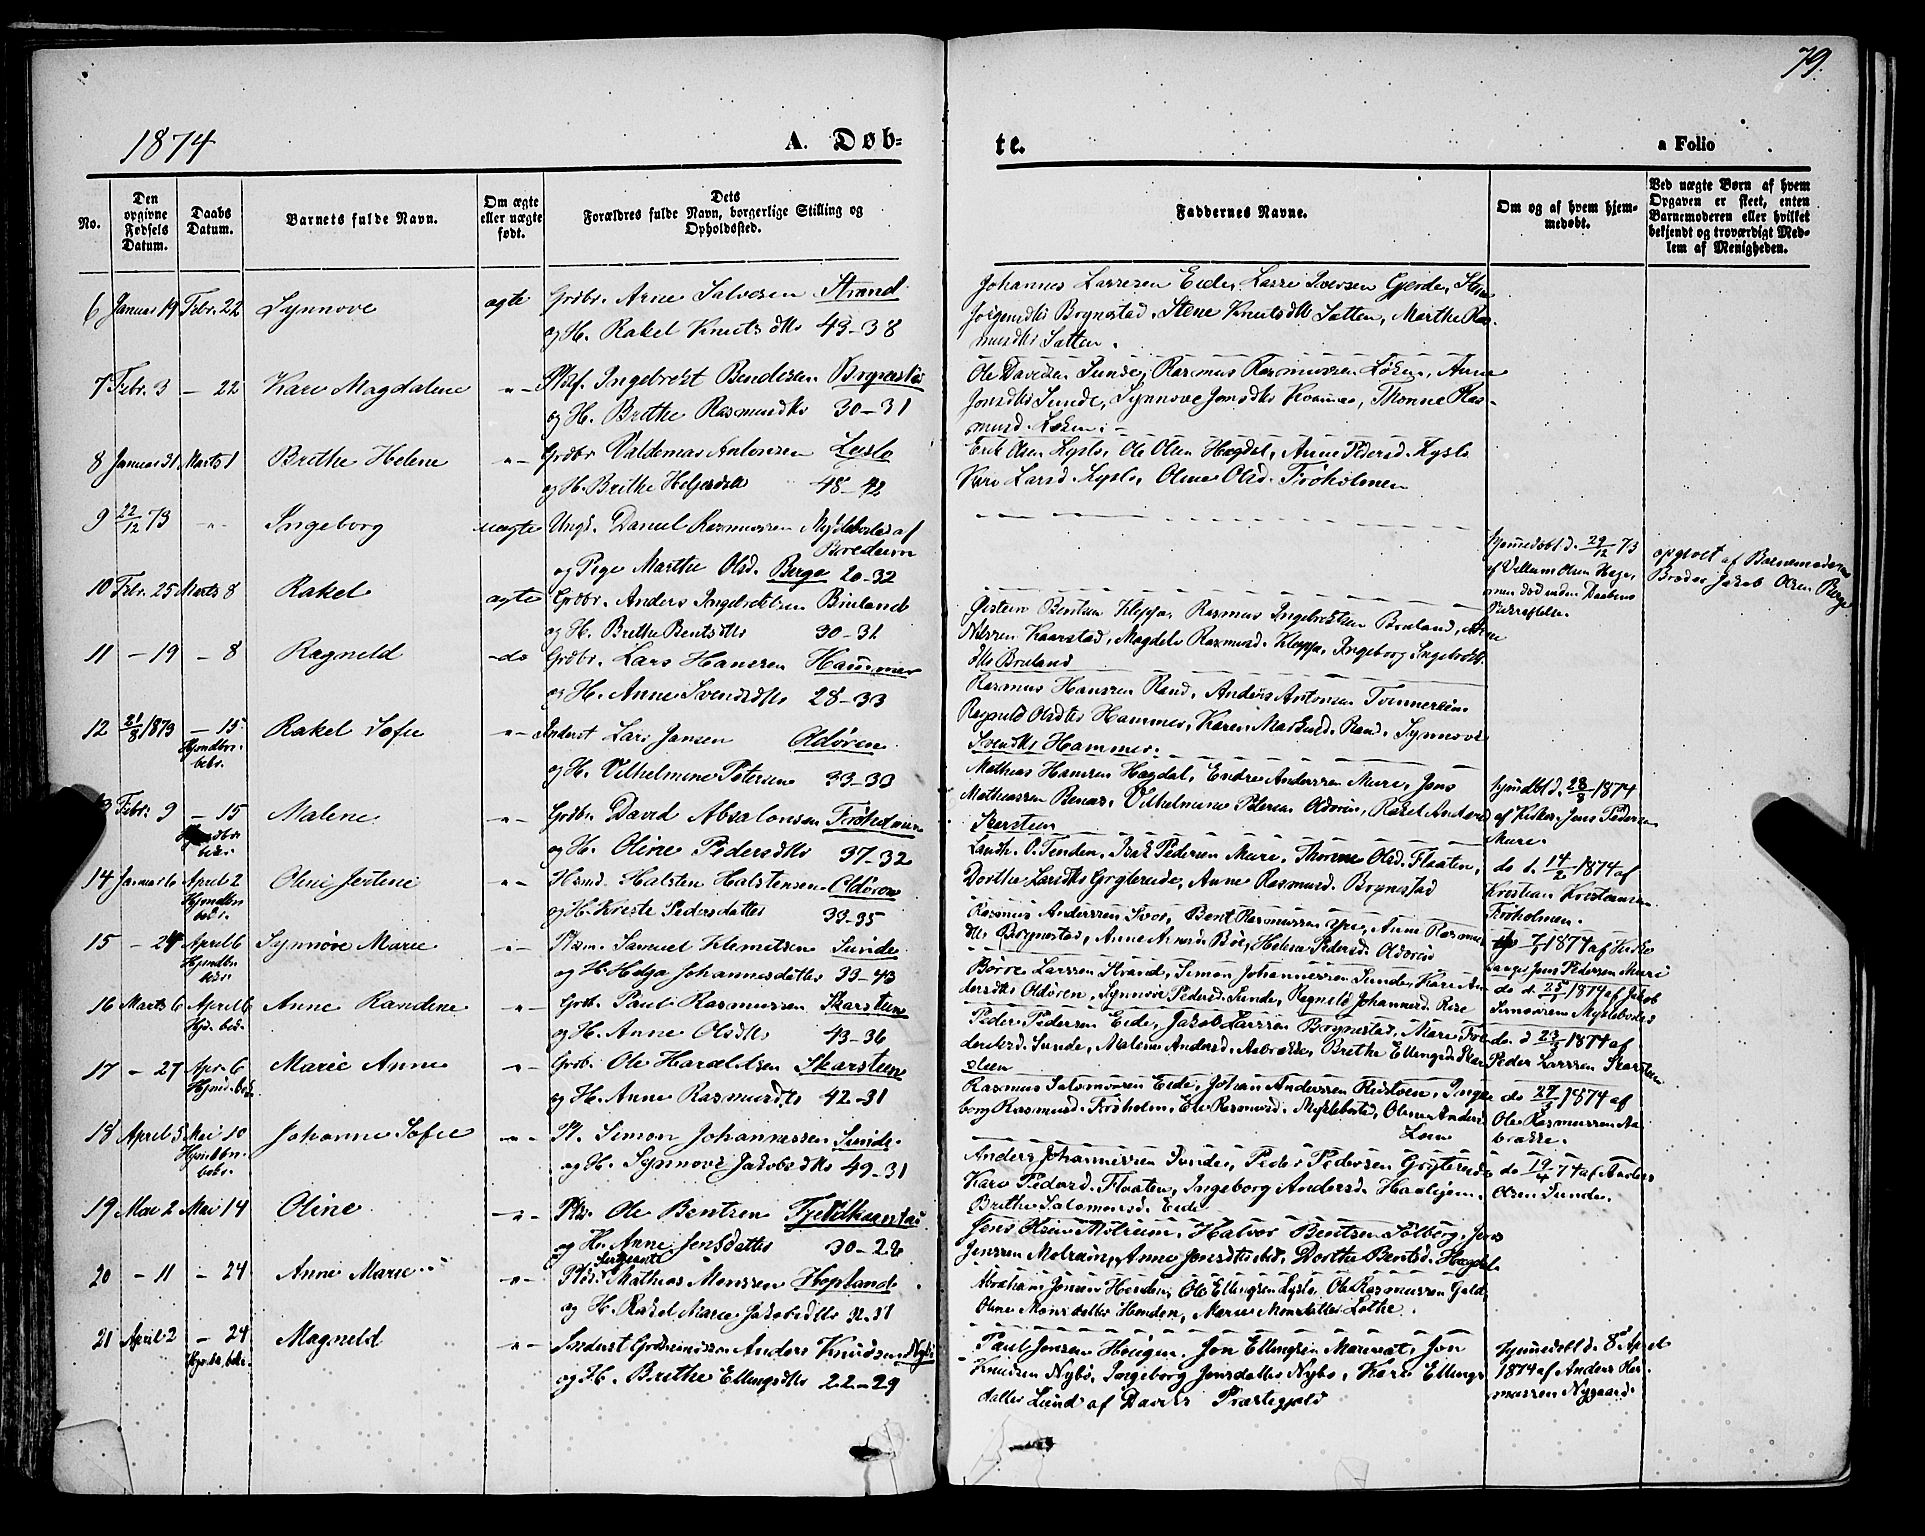 79.
1874 A. Døb- te. a Folio
No.
Den opgivne Fødsels Datum.
Daabs Datum.
Barnets fulde Navn.
Om ægte eller uægte født.
Dets Forældres fulde Navn, borgerlige Stilling og Opholdssted.
Faddernes Navne.
Om og af hvem hjemmedøbt.
Ved uægte Børn af hvem Opgaven er skeet, enten Barnemoderen eller hvilket bekjendt og troværdigt Medlem af Menigheden.
6 Januar 19 Febr. 22 Synnove ægte Grdbr. Arne Salvesen Strand
og H. Rakel Knutsdtr 43-38
Johannes Larssen Eide, Lasse Iversen Gjerde,
Brynestad, Stene Knutsdtr Satten, Marthe Ras-
musdtr Satten.
7 Febr. 3 - 22 Kari Magdalene -"- Ingebrekt Bendixen
og H. Brithe Rasmusdtr 30-31
Ole Davidsen Sunde, Rasmus Rasmussen Løken, Anne
Jonsdtr Sunde, Synnove Jonsdtr Thonne Ras-
musd. Løken.-
8 Januar 31 Marts 1 Brithe Helene -"- Grdbr. Valdemar Antonsen
og H. Brithe Helgesdtr 48-42
Erik Olsen Lyslo, Ole Olsen Hægdal, Anne Pedersd. Lyslo
Kari Larsd. Lyslo, Oline Olsd. Frøholmen
9 22/12 73 -"- Ingeborg uægte Ungk. Daniel Rasmussen Myklebostad af
Bredeim
og Pige Marthe Olsd. Berge 20-32
hjemmedøbt d. 29/12 73
af Villum Olsen
død uden Daabens
opgivet af Barnemoderens
Broder Jakob Olsen Berge
10 Febr. 25 Marts 8 Rakel ægte Grdbr. Anders Ingebrektsen Bruland
og H. Brithe Bentsdtr 30-31
Østein Bentsen Kleppa, Rasmus Ingebrektsen Bruland, Arne
Nilssen Kaarstad, Magdele Rasmusd. Kleppa, Ingeborg Ingebrekts-
dtr Bruland
11 - 19 - 8 Ragneld -do Grdbr. Lars Hanssen Hammer
og H. Anne Svendsdtr 28-33
Rasmus Hanssen Rand, Anders Antonsen
Ragneld Olsdtr Hammer, Karen Rand, Synnove
Svendsdtr Hammer.
12 21/8 1873 - 15 Rakel Sofie -"- Inderst Lars Jansen Oldøren
Hjemdbn.
bekr.
og H. Vilhelmine Petersen 33-33
Mathias Hansen Hægdal, Endre Anderssen Muri, Jens
Mathiassen Benes, Vilhelmine Petersen Oldøren, Rakel Andersd
Skarsteen
hjemdbt d. 28/8 1874
af Kirkes. Jens Pedersen
Muri.
13 Febr. 9 - 15 Malene -"- Grdbr. David Absalonsen Frøholmen
og H. Oline Pedersdtr 37-32
O. Tenden, Isak Pedersen Muri, Thorine Olsd. Flaaten,
Dorthe Larsdtr Grytereide, Anne Rasmusd. Brynestad
do d. 14/2 1874 af
Kristian Kristiansen
Frøholmen.
14 Januar 6 April 2 Oline Jertine -"- Halsten Halstensen Oldøren
Hjemdbn
bekr.
og H. Kirste Pedersdatter 33-35
Rasmus Anderssen Svor, Bent Rasmussen Yri, Anne Rasmus-
dtr Brynestad, Anne Bøe, Helene Pedersd. Oldøren
do 7/1 1874 af Kirke-
sanger Jens Pedersen Muri
15 - 24 April 6 Synnøve Marie -"- Samuel Klemetsen Sunde
Hjemdbn
bekr.
og H. Helga Johannesdatter 33-43
Børre Larssen Strand, Simon Johannessen Sunde, Kari An-
dersdtr Oldøren, Synnøve Pedersd. Sunde, Ragneld Johannesd. Rise
do d. 25/1 1874 af Jakob
Simonsen Myklebostad
16 Marts 6 April 6 Anne Randine -"- Grdb. Paul Rasmussen Skarsteen
Hj. bek.
og H. Anne Olsdtr 43-36
Peder Pedersen Eide, Jakob Larssen Brynestad, Mari
Sunde, Malene Andersd. Aabrække, Brithe Ellingsd. Skar-
steen
do. d. 23/3 1874 af
Peder Larssen Skarsteen
17 - 27 Apr. 6 Marie Anne -"- Grdb. Ole Haraldsen Skarsteen
Hjmd. bek.
og H. Anne Rasmusdtr 42-31
Rasmus Salomonsen Eide, Johan Anderssen Inge-
borg Rasmusd. Frøholm, Eli Rasmusd. Myklebostad, Oline Andersd
Loen
do 27/3 1874 af
Ole Rasmussen Aa-
brække.
18 April 5 Mai 10 Johanne Sofie -"- Pl. Simon Johannessen Sunde
Hjemdbn.
bekr.
og H. Synnove Jakobsdtr 49-31
Anders Johannessen Sunde, Peder Pedersen Grytereide
Kari Pedersd. Flaaten, Ingeborg Andersd.
Brithe Salomonsd. Eide
do 19/4 74 af Anders
Olsen Sunde.
19 Mai 2 Mai 14 Oline -"- Pls. Ole Bentsen
og H. Anne Jensdatter 30-28
Jens Olsen Melreim, Halvor Bentsen Solberg, Jens
Jenssen Melreim, Anne Jonsdtr Dorthe Bentsd. Hægdal
20 - 11 - 24 Anne Marie -"- Sergeante
Mathias Monssen Hopland
og H. Rakel Marie Jakobsdtr 32-31
Abraham Jonsen Henden, Ole Ellingsen Lyslo, Ole Rasmussen
Oline Monsdatter Henden, Marie Monsdatter Lothe.
21 April 2 - 24 Magneld -"- Inderst Anders Knudsen Nybø
Hjmdn. bekr.
og H. Brithe Ellingsdtr 22-29
Paul Jensen Haugen, Jon Ellingsen Jon
Knudsen Nybø, Ingeborg Jonsdatter Nybø, Kari Ellings-
datter Lund af Davik Præstegjeld
hjemmedøbt d. 8de April
1874 af Anders Ras-
mussen Nygaard.